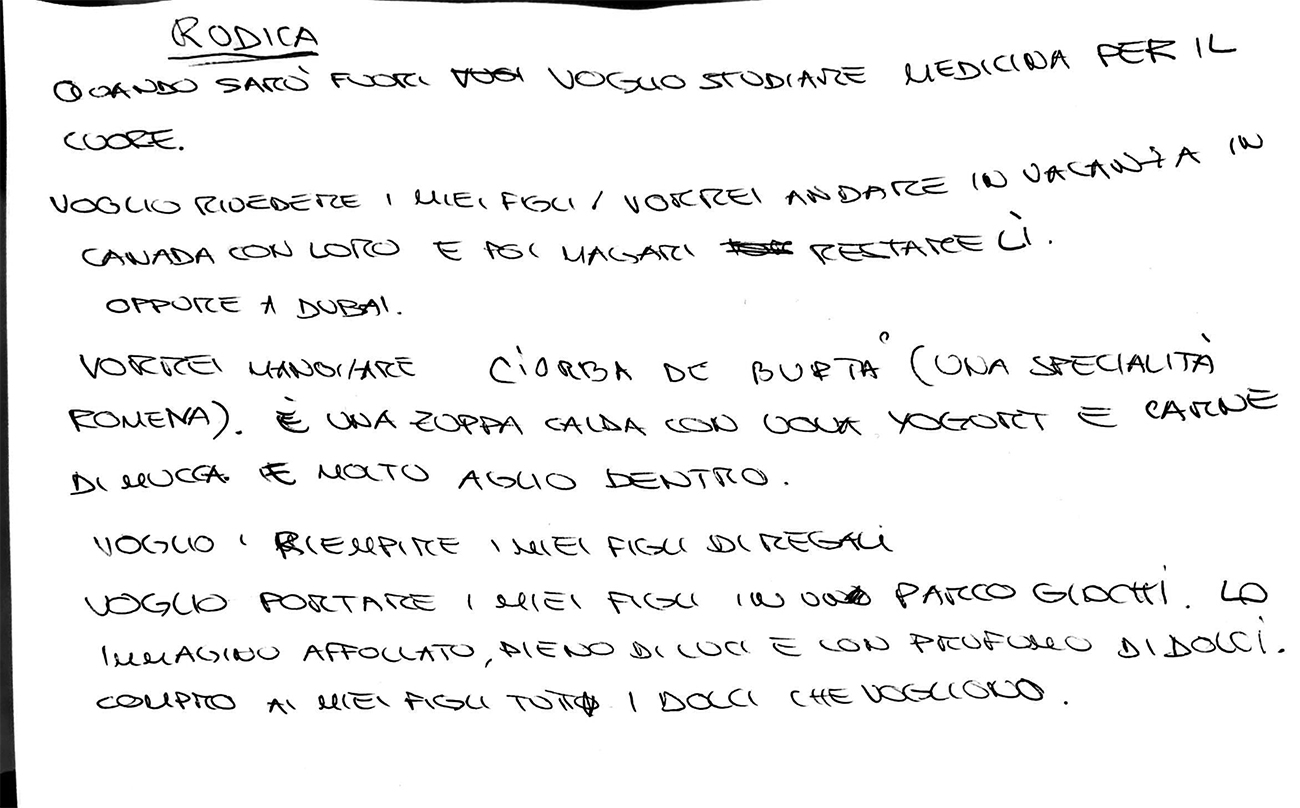 RODICA
QUANDO SARÒ FUORI VOGLIO STUDIARE MEDICINA PER IL
CUORE.
VOGLIO RIVEDERE I MIEI FIGLI / VORREI ANDARE IN VACANZA IN
CANADA CON LORO E POI MAGARI RESTARE LÌ.
OPPURE A DUBAI.
VORREI MANGIARE CIORBA DE BURTA (UNA SPECIALITÀ
ROMENA). È UNA ZUPPA CALDA CON UOVA YOGORT E CARNE
DI MUCCA E MOLTO AGLIO DENTRO.
VOGLIO RIEMPIRE I MIEI FIGLI DI REGALI
VOGLIO PORTARE I MIEI FIGLI IN UN PARCO GIOCHI. LO
IMMAGINO AFFOLLATO, PIENO DI LUCI E CON PROFUMO DI DOLCI.
COMPRO AI MIEI FIGLI TUTTI I DOLCI CHE VOGLIONO.